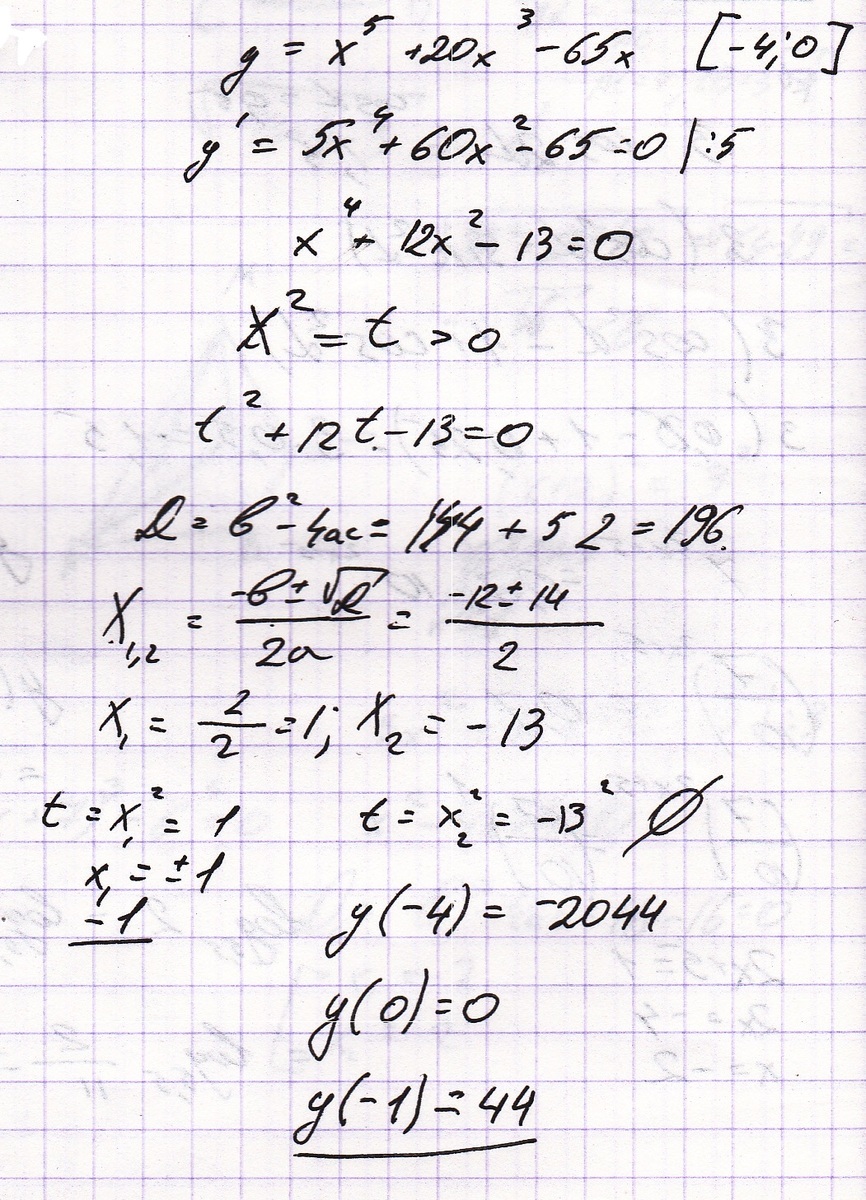 y = x⁵ + 20x³ - 65x [-4;0]
y' = 5x⁴ + 60x² - 65 = 0 | :5
x⁴ + 12x² - 13 = 0
x² = t > 0
t² + 12t - 13 = 0
D = b² - 4ac = 144 + 52 = 196.
X₁,₂ = (-b ± √D)/(2a) = (-12 ± 14)/2
X₁ = 2/2 = 1; X₂ = -13
t = x₁² = 1 t = x₂² = -13² ∅
x₁ = ±1
-1 y(-4) = -2044
y(0) = 0
y(-1) = 44